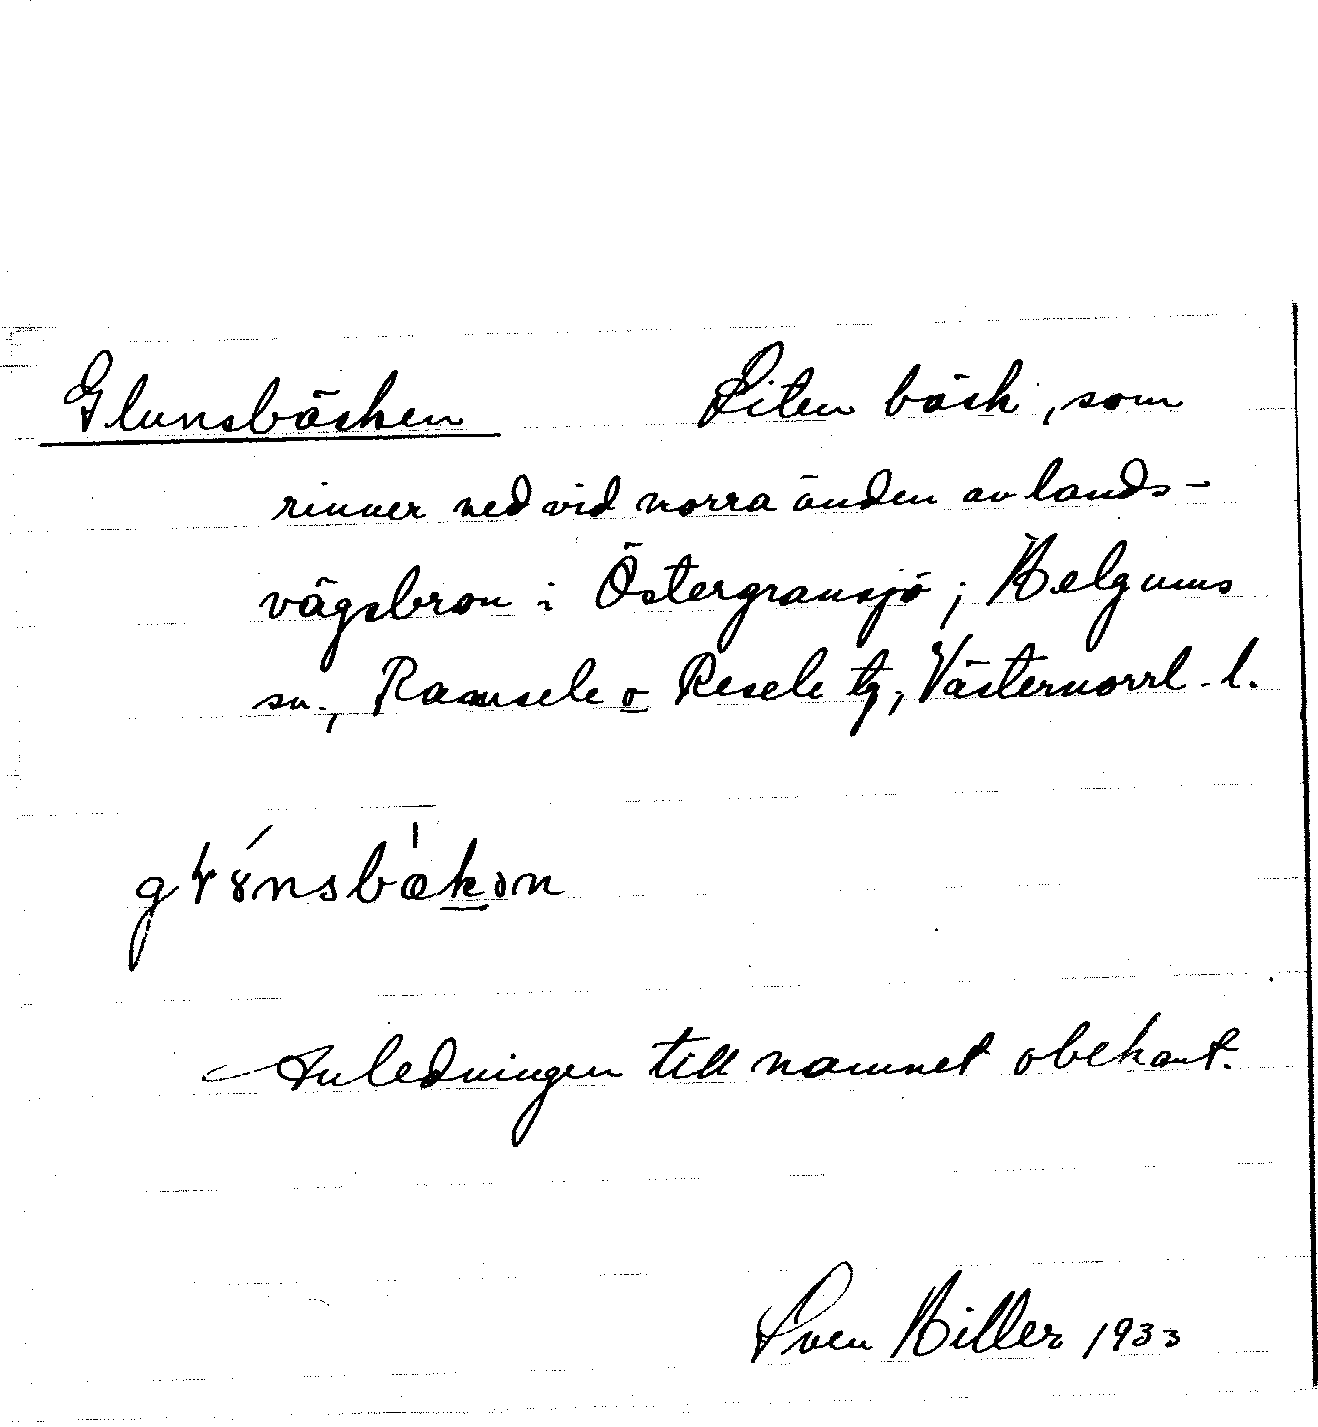 Glunsbäcken Liten bäck, som
rinner ned vid norra änden av lands-
vägsbron i Östergransjö; Helgums
sn., Ramsele o Resele tg, Västernorrl. l.
Anledningen till namnet obekant.
Sven Hiller 1933